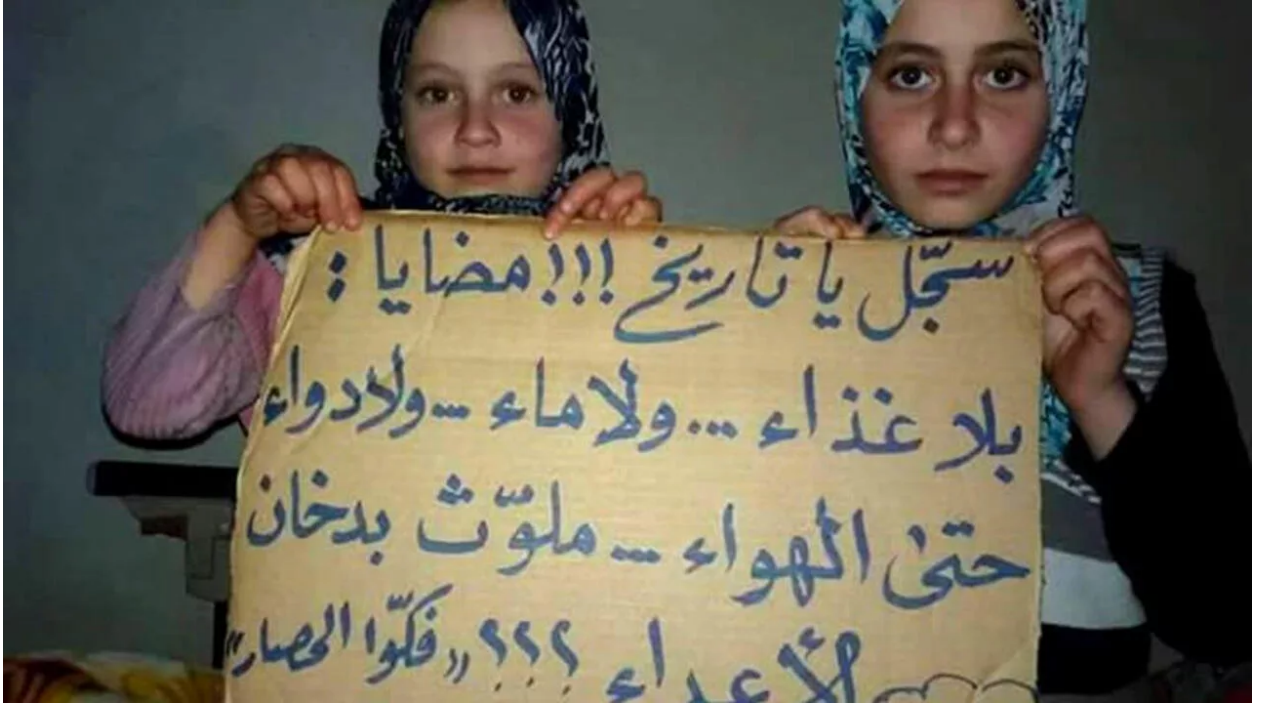 سجّل يا تاريخ !!! مضايا :
بلا غذاء ... ولا ماء ... ولا دواء
حتىٰ الهواء ... ملوّث بدخان
الأعداء ؟؟؟ "فكّوا الحصار"